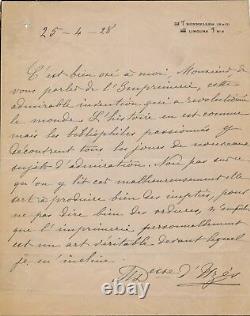 25-4-28
BONNELLES (S&O)
LIMOURS
C'est bien osé à moi, Monsieur, de
vous parler de l'Imprimerie, cette
admirable invention qui a révolutionné
le monde. L'histoire en est connue
mais les bibliophiles passionnés y
découvrent tous les jours de nouveaux
sujets d'admiration. Mais on
qu'on y lit malheureusement elle
sert à produire bien des inepties, pour
ne pas dire bien des ordures, n'empêche
que l'imprimerie personnellement
est un art véritable devant lequel
je m'incline.
Dsse d'Uzès